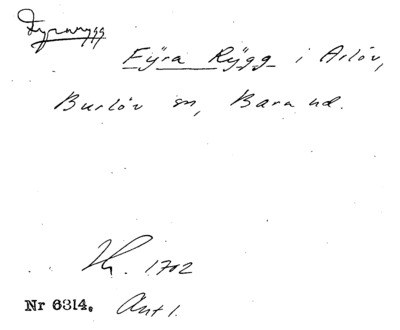 Fyrarygg
Fÿra Rÿgg i Arlöv,
Burlöv sn, Bara hd.
Kr. 1702
Nr 6314. Ant 1.